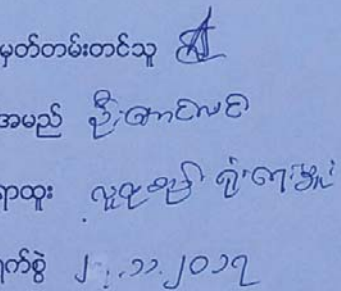 မှတ်တမ်းတင်သူ
အမည် ဦးအောင်လင်း
ရာထူး လူထုစည်းရုံးရေးမှူး
ရက်စွဲ ၂ . ၁၁ . ၂၀၁၇